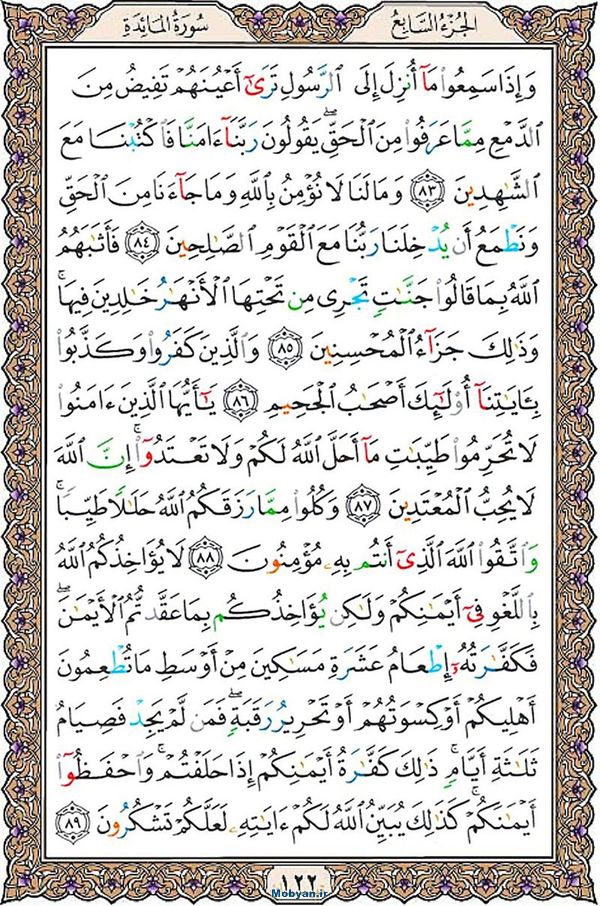 الجُزْءُ السَّابِعُ
سُورَةُ المَائِدَةِ
وَإِذَا سَمِعُوا۟ مَآ أُنزِلَ إِلَى ٱلرَّسُولِ تَرَىٰٓ أَعْيُنَهُمْ تَفِيضُ مِنَ
ٱلدَّمْعِ مِمَّا عَرَفُوا۟ مِنَ ٱلْحَقِّ ۖ يَقُولُونَ رَبَّنَآ ءَامَنَّا فَٱكْتُبْنَا مَعَ
ٱلشَّٰهِدِينَ ﴿٨٣﴾ وَمَا لَنَا لَا نُؤْمِنُ بِٱللَّهِ وَمَا جَآءَنَا مِنَ ٱلْحَقِّ
وَنَطْمَعُ أَن يُدْخِلَنَا رَبُّنَا مَعَ ٱلْقَوْمِ ٱلصَّٰلِحِينَ ﴿٨٤﴾ فَأَثَٰبَهُمُ
ٱللَّهُ بِمَا قَالُوا۟ جَنَّٰتٍ تَجْرِى مِن تَحْتِهَا ٱلْأَنْهَٰرُ خَٰلِدِينَ فِيهَا ۚ
وَذَٰلِكَ جَزَآءُ ٱلْمُحْسِنِينَ ﴿٨٥﴾ وَٱلَّذِينَ كَفَرُوا۟ وَكَذَّبُوا۟
بِـَٔايَٰتِنَآ أُو۟لَٰٓئِكَ أَصْحَٰبُ ٱلْجَحِيمِ ﴿٨٦﴾ يَٰٓأَيُّهَا ٱلَّذِينَ ءَامَنُوا۟
لَا تُحَرِّمُوا۟ طَيِّبَٰتِ مَآ أَحَلَّ ٱللَّهُ لَكُمْ وَلَا تَعْتَدُوٓا۟ ۚ إِنَّ ٱللَّهَ
لَا يُحِبُّ ٱلْمُعْتَدِينَ ﴿٨٧﴾ وَكُلُوا۟ مِمَّا رَزَقَكُمُ ٱللَّهُ حَلَٰلًا طَيِّبًا ۚ
وَٱتَّقُوا۟ ٱللَّهَ ٱلَّذِىٓ أَنتُم بِهِۦ مُؤْمِنُونَ ﴿٨٨﴾ لَا يُؤَاخِذُكُمُ ٱللَّهُ
بِٱللَّغْوِ فِىٓ أَيْمَٰنِكُمْ وَلَٰكِن يُؤَاخِذُكُم بِمَا عَقَّدتُّمُ ٱلْأَيْمَٰنَ ۖ
فَكَفَّٰرَتُهُۥٓ إِطْعَامُ عَشَرَةِ مَسَٰكِينَ مِنْ أَوْسَطِ مَا تُطْعِمُونَ
أَهْلِيكُمْ أَوْ كِسْوَتُهُمْ أَوْ تَحْرِيرُ رَقَبَةٍ ۖ فَمَن لَّمْ يَجِدْ فَصِيَامُ
ثَلَٰثَةِ أَيَّامٍ ۚ ذَٰلِكَ كَفَّٰرَةُ أَيْمَٰنِكُمْ إِذَا حَلَفْتُمْ ۚ وَٱحْفَظُوٓا۟
أَيْمَٰنَكُمْ ۚ كَذَٰلِكَ يُبَيِّنُ ٱللَّهُ لَكُمْ ءَايَٰتِهِۦ لَعَلَّكُمْ تَشْكُرُونَ ﴿٨٩﴾
١٢٢
Mobyan.ir